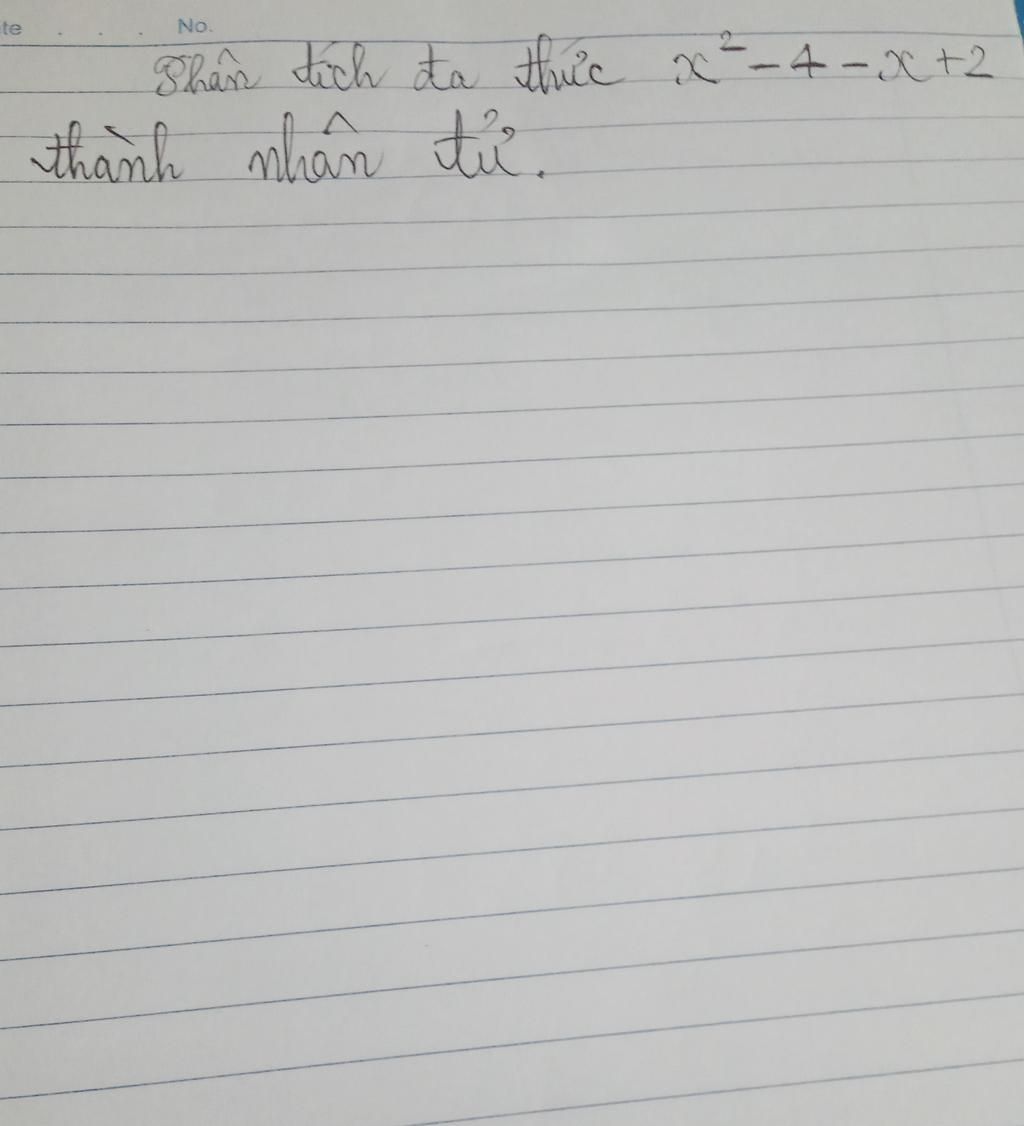 te . . . No.
Phân tích đa thức x² - 4 - x + 2
thành nhân tử.